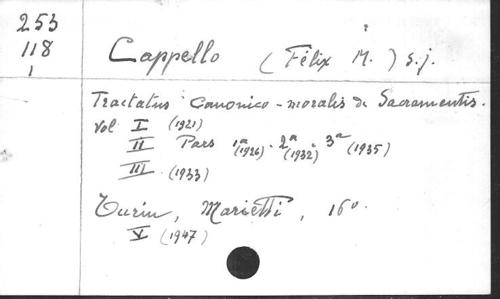 253
118
1
Cappello (Félix M.) s.j.
Tractatus Canonico-moralis de Sacramentis.
Vol I (1921)
II Pars 1a (1926). 2a (1932) 3a (1935)
III (1933)
Turin, Marietti, 16°.
V (1947)